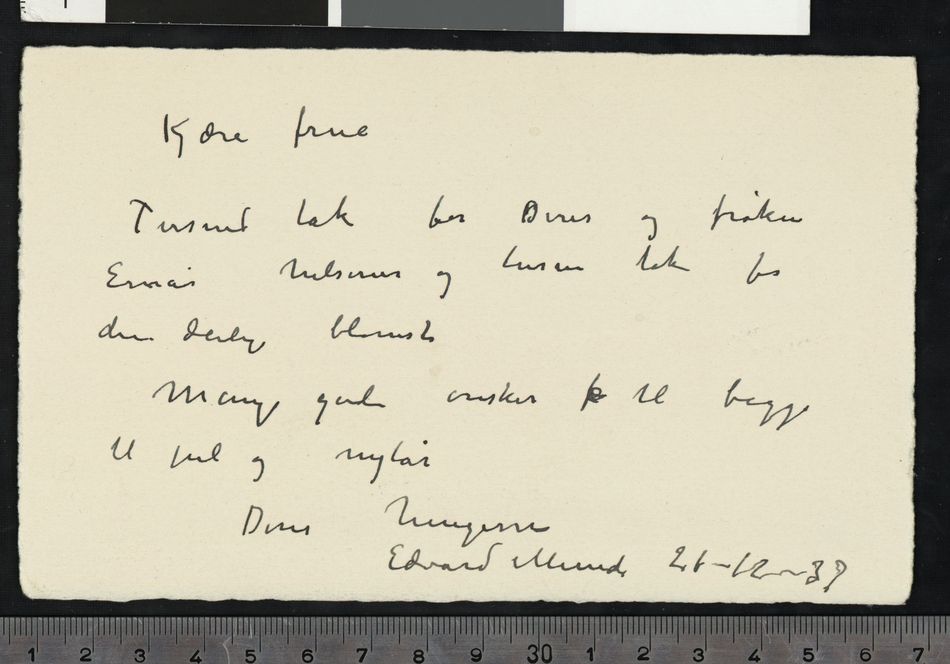 Kjære frue
Tusind tak for Deres og frøken
hilsener og tusen tak for
den deilige blomst
Mange gode ønsker til begge
til jul og nytår
Deres hengivne
Edvard Munch 21-12-39
1 2 3 4 5 6 7 8 9 30 1 2 3 4 5 6 7